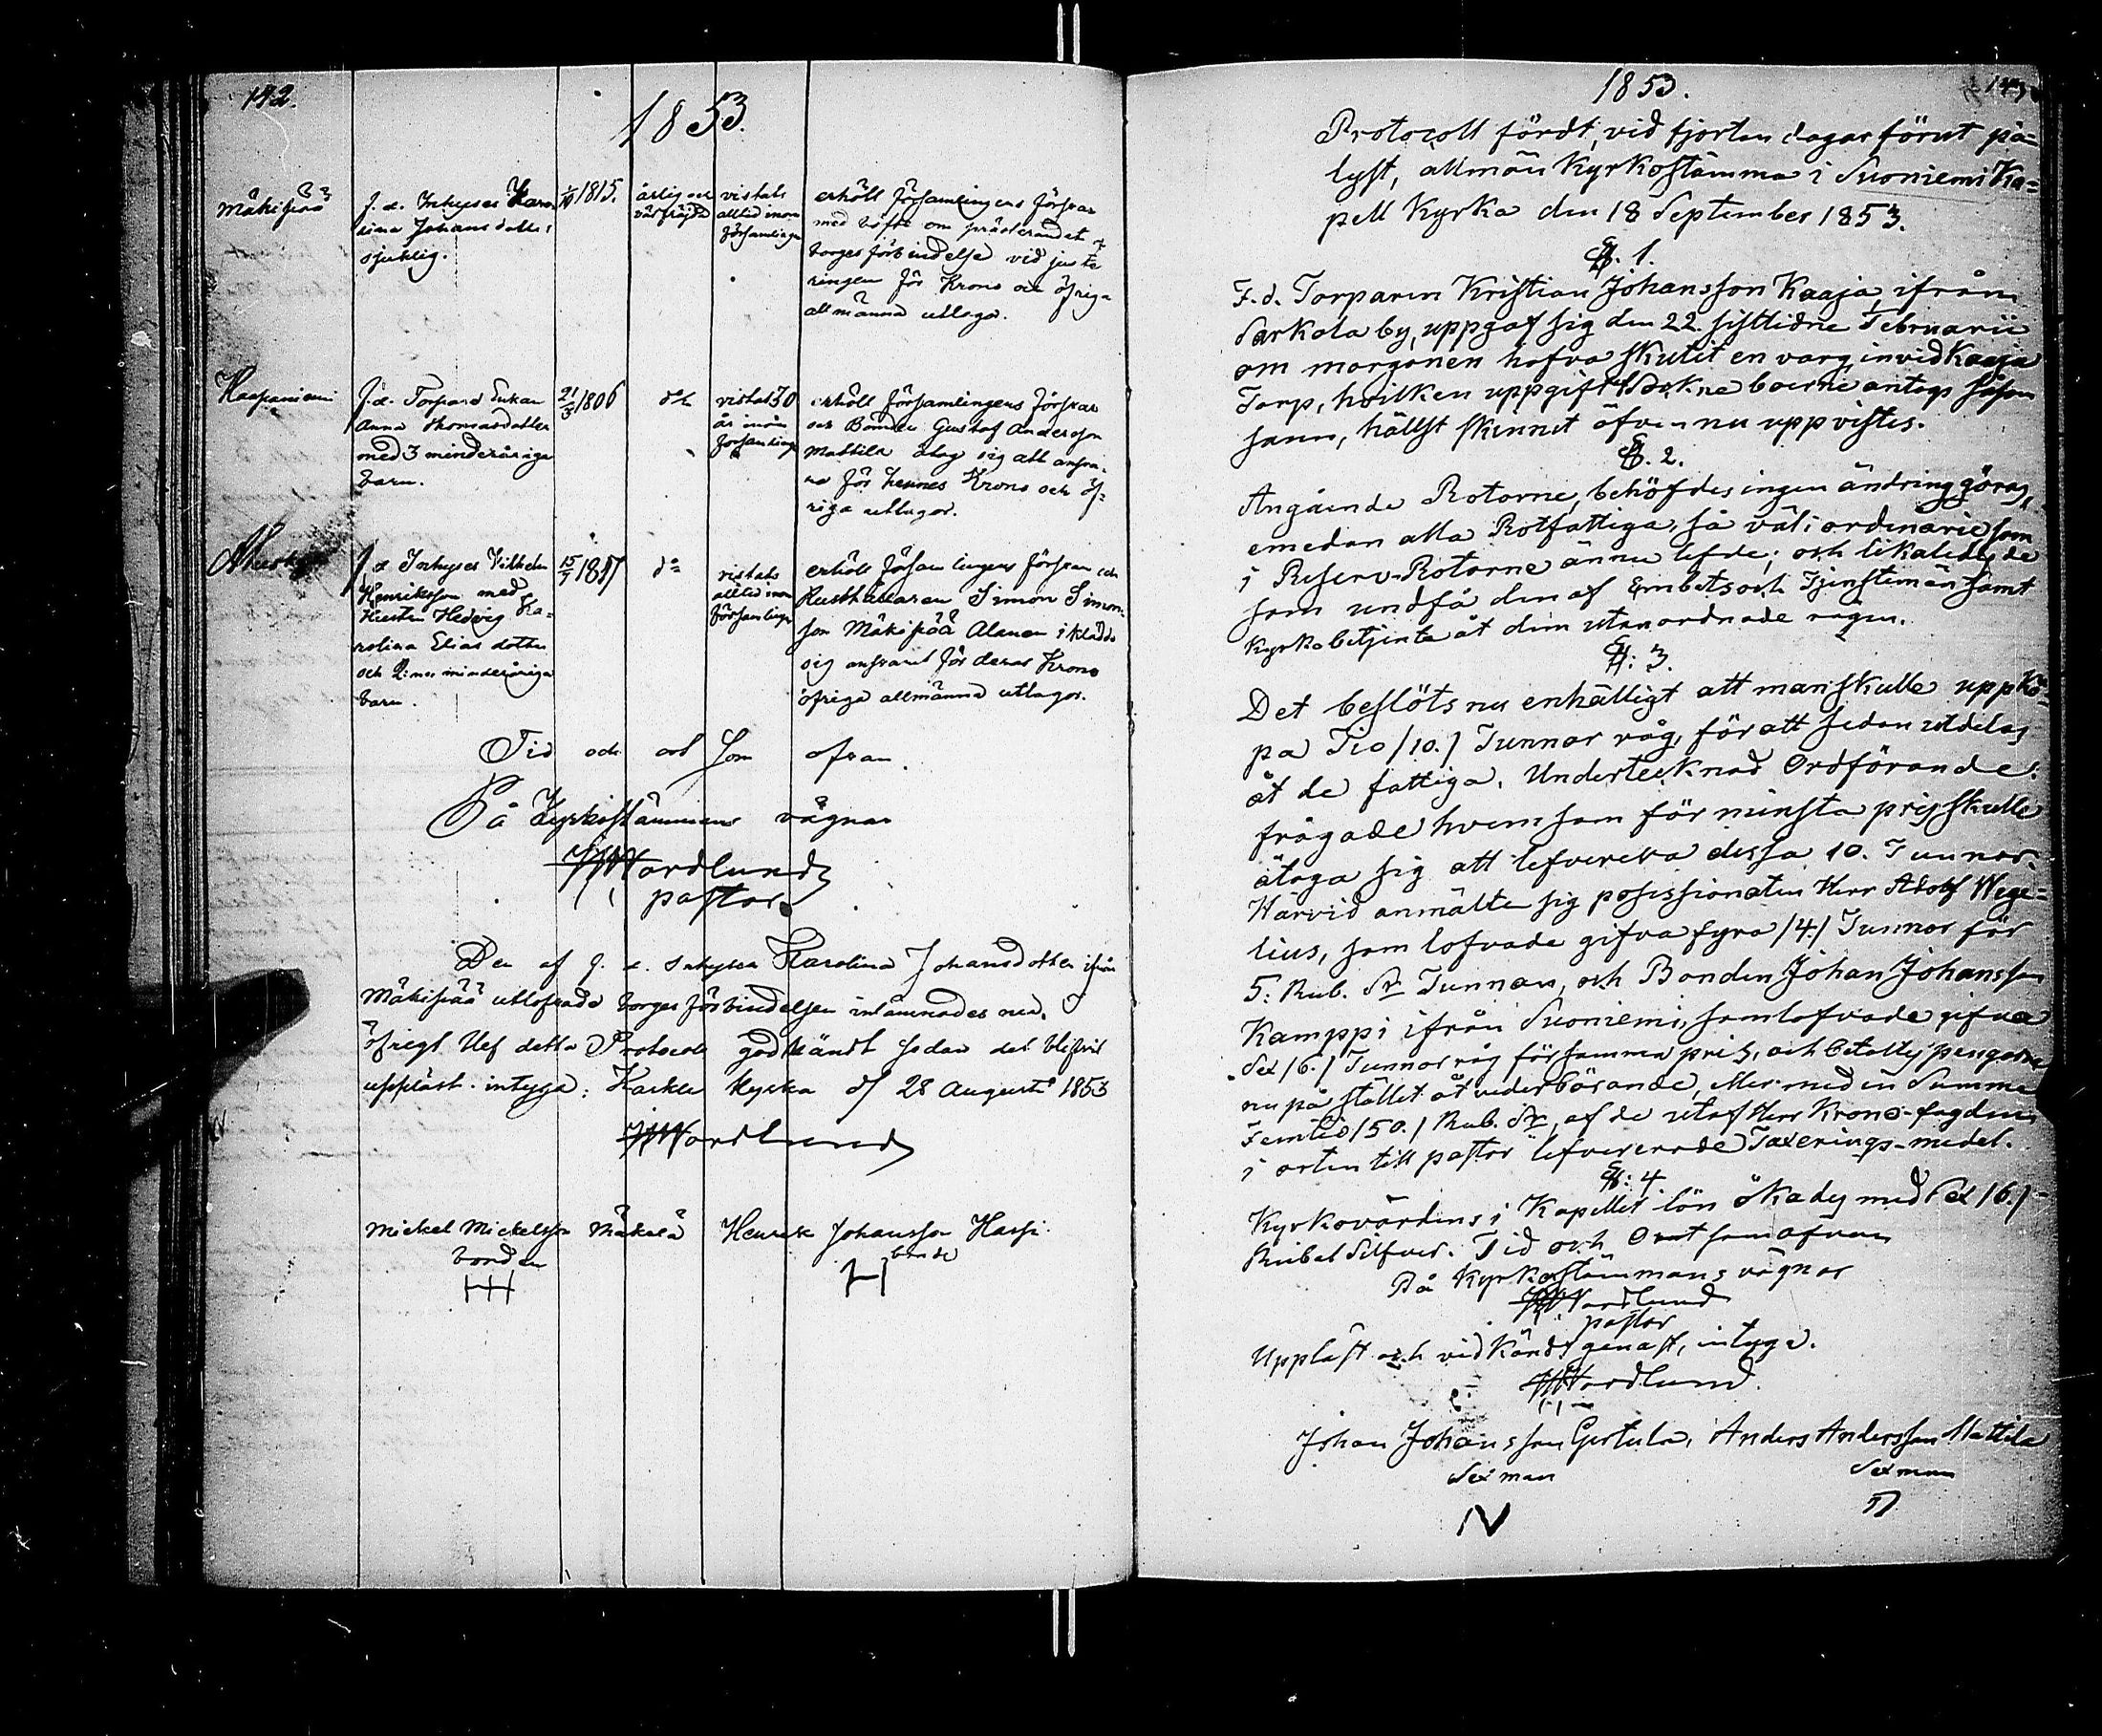 142.
1853.
Mäkipää
f. d. Inhyses Karo-
lina Johansdotter
sjuklig.
1815.
ärlig och
välfräjdad
vistats
alltid inom
församlingen
erhöll församlingens försvar
med löfte om
borgesförbindelse vid juste
ringen för Krono och öfriga
allmänna utlagor.
Haapaniemi
f. d. Torpare Enkan
Anna Thomasdotter
med 3 minderåriga
barn.
21/3 1806
do
vistats 30
år inom
församlingen
erhöll församlingens försvar
och Bonden Gustaf Andersson
Mattila åtog sig att ansva-
ra för hennes Krono och öf-
riga utlagor.
f d Inhyses Vilhelm
Henriksson med
Hustru Hedvig Ka-
rolina Elias dotter
och 2:ne minderåriga
barn.
15/7 1817
do
vistats
alltid inom
församlingen
erhöll församlingens försvar och
Rusthållaren Simon Simon-
son Mäkipää Alanen iklädde
sig ansvaret för deras Krono
öfriga allmänna utlagor.
Tid och ort som ofvan.
På Kyrkostämmans vägnar
Nordlund
pastor.
Den af f. d. Inhyses Karolina Johansdotter ifrån
Mäkipää utlofvade borgesförbindelsen inlämnades nu. I
öfrigt blef detta Protocoll godkändt sedan det blifvit
uppläst. intyga: Karkku Kyrka d 28 Augusti 1853
Nordlund
Mickel Mickelsson Mäkelä
bonden
Henrik Johansson Hassi
bonde
1853.
143
Protocoll fördt, vid fjorton dagar förut på-
lyst, allmän Kyrkostämma i Suoniemi Ka-
pell Kyrka den 18 September 1853.
§. 1.
F. d. Torparen Kristian Johansson Kaaja, ifrån
Sarkola by, uppgaf sig den 22. sistlidne Februarii
om morgonen hafva skutit en varg invid Kaaja
Torp, hvilken uppgift Sokneboerne antogs såsom
sann, hällst skinnet äfven nu uppvistes.
§. 2.
Angående Rotorne, behöfdes ingen ändring göras,
emedan alla Rotfattiga, så väl i ordinarie som
i Reserv-Rotorne ännu lefde; och likaledes de
som undfå den af Embets och Tjenstemän samt
Kyrkobetjente åt dem utanordnade rågen.
§: 3.
Det beslöts nu enhälligt att man skulle uppkö-
pa Tio /10./ Tunnor råg, för att sedan utdelas
åt de fattiga. Undertecknad Ordförande
frågade hvem som för minsta pris skulle
åtaga sig att leverera dessa 10. Tunnor.
Härvid anmälte sig possissionaten Herr Adolf Wege-
lius, som lofvade gifva fyra /4./ Tunnor för
5: Rub. Sr Tunnan, och Bonden Johan Johansson
Kamppi ifrån Suoniemi, som lofvade gifva
Sex /6./ Tunnor råg för samma pris, och betaltes pengarne
nu på stället åt vederbörande, eller med en Summa
Femtio /50./ Rub. Sr, af de utaf Herr Krono-fogden
i orten till pastor lefvererade Taxerings-medel.
§: 4
Kyrkovärdens i Kapellet lön ökades med Sex /6./
Rubel Silfver. Tid och Ort som ofvan
På Kyrkostämmans vägnar
Nordlund
pastor
Uppläst och vidkändt genast, intyga.
Nordlund.
Johan Johansson Gertula, Anders Andersson Mattila
Sexman
Sexman